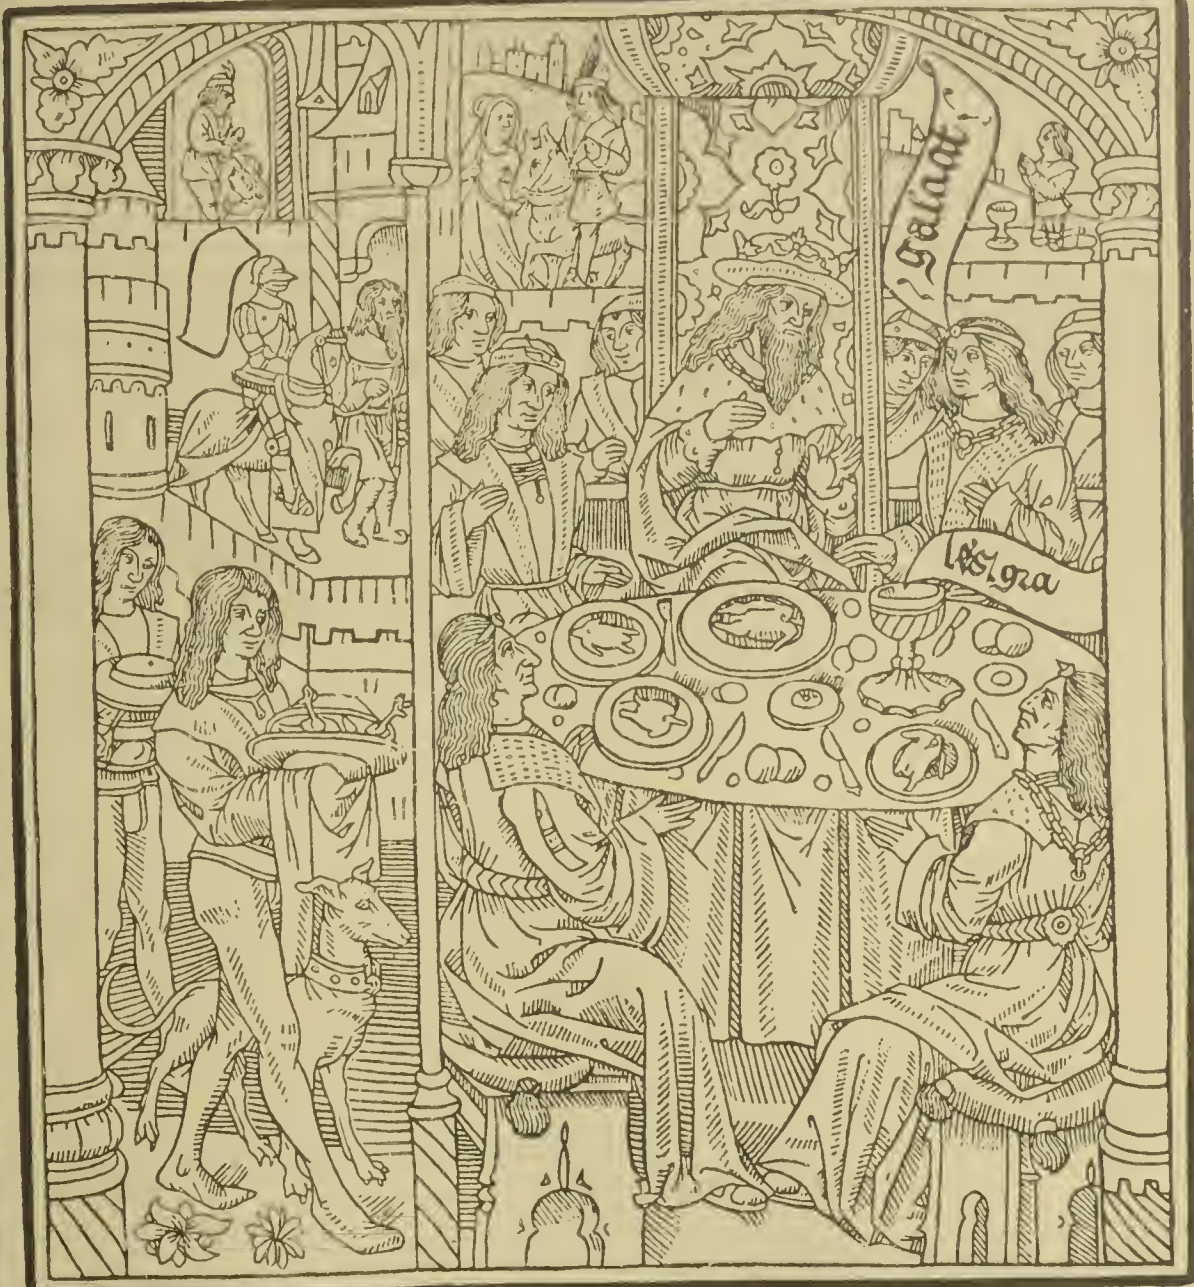 galaad
le .S. gra